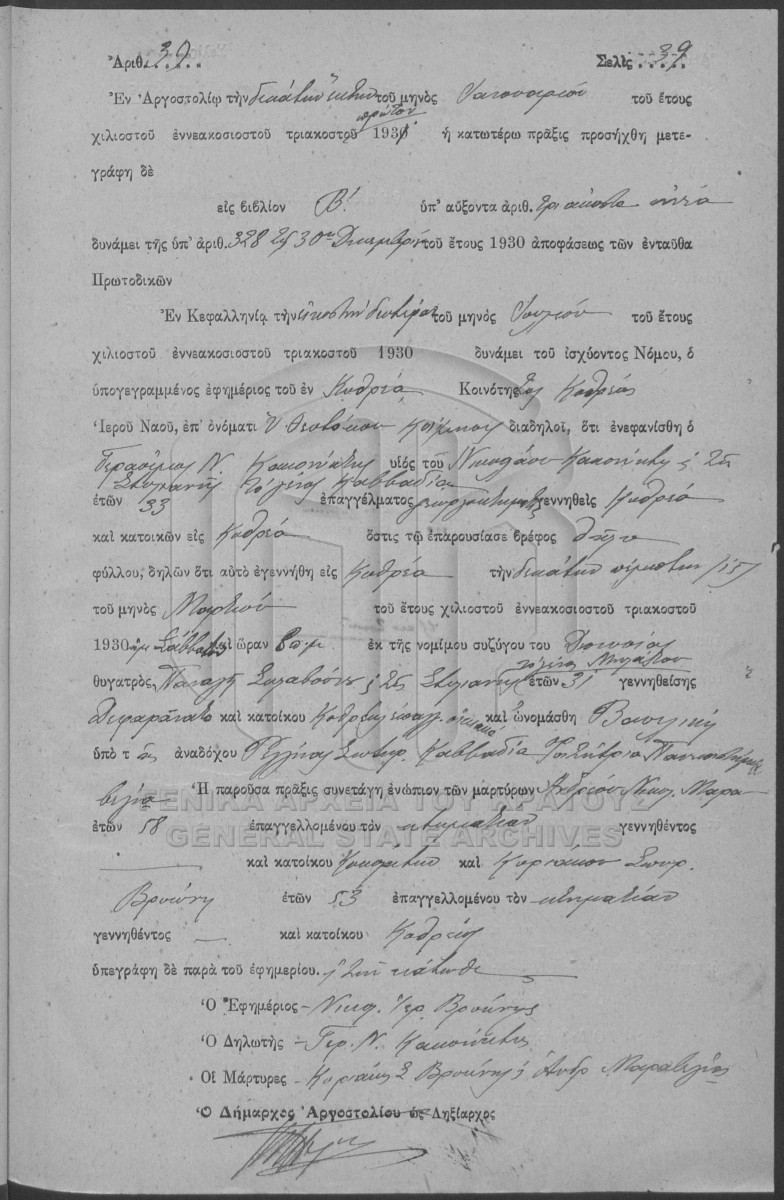 Ἀριθ. 39 Σελὶς 39
Ἐν Ἀργοστολίῳ τὴν δεκάτην ἕκτην τοῦ μηνὸς Ἰανουαρίου τοῦ ἔτους
πρώτου
χιλιοστοῦ ἐννεακοσιοστοῦ τριακοστοῦ 1931 ἡ κατωτέρω πρᾶξις προσήχθη μετε-
γράφη δὲ
εἰς βιβλίον Β! ὑπ' αὔξοντα ἀριθ. τριάκοντα ἐννέα
δυνάμει τῆς ὑπ' ἀριθ. 328 τῆς 30ης Δεκεμβρίου τοῦ ἔτους 1930 ἀποφάσεως τῶν ἐνταῦθα
Πρωτοδικῶν
Ἐν Κεφαλληνίᾳ τὴν εἰκοστὴν δευτέραν τοῦ μηνὸς Ἰουλίου τοῦ ἔτους
χιλιοστοῦ ἐννεακοσιοστοῦ τριακοστοῦ 1930 δυνάμει τοῦ ἰσχύοντος Νόμου, ὁ
ὑπογεγραμμένος ἐφημέριος τοῦ ἐν Κοθρέᾳ Κοινότης Κοθρέας
Ἱεροῦ Ναοῦ, ἐπ' ὀνόματι Ὑ. Θεοτόκου Κοίμησις διαδηλοῖ, ὅτι ἐνεφανίσθη ὁ
Γεράσιμος Ν. υἱὸς τοῦ Νικολάου ἐτῶν
Στυλιανῆς τὸ γένος Καββαδία
ἐτῶν 33 ἐπαγγέλματος γεωργοκτηματίας γεννηθεὶς Κοθρέα
καὶ κατοικῶν εἰς Κοθρέα ὅστις τῷ ἐπαρουσίασε βρέφος θῆλυ
φύλλου, δηλῶν ὅτι αὐτὸ ἐγεννήθη εἰς Κοθρέα τὴν δεκάτην πέμπτην /15/
τοῦ μηνὸς Μαρτίου τοῦ ἔτους χιλιοστοῦ ἐννεακοσιοστοῦ τριακοστοῦ
1930 ἡμ. Σάββατον καὶ ὥραν 8 π.μ. ἐκ τῆς νομίμου συζύγου του
τὸ γένος
θυγατρὸς Παναγῆ Στυλιανῆς ἐτῶν 31 γεννηθείσης
Δεφαρανάτα καὶ κατοίκου Κοθρέας ἐπαγγ. οἰκιακά καὶ ὠνομάσθη Βασιλική
ὑπὸ τῆς ἀναδόχου Καββαδία
Ἡ παροῦσα πρᾶξις συνετάγη ἐνώπιον τῶν μαρτύρων Ἀνδρέου Νικ. Μαρα-
βέγια
ΓΕΝΙΚΑ ΑΡΧΕΙΑ ΤΟΥ ΚΡΑΤΟΥΣ
ἐτῶν 58 ἐπαγγελλομένου τὸν κτηματίαν γεννηθέντος
GENERAL STATE ARCHIVES
καὶ κατοίκου καὶ Κυριάκου Σπυρ.
Βρυώνη ἐτῶν 53 ἐπαγγελλομένου τὸν κτηματίαν
γεννηθέντος — καὶ κατοίκου Κοθρέας
ὑπεγράφη δὲ παρὰ τοῦ ἐφημερίου. κάτωθι
Ὁ Ἐφημέριος – Νικ. Γερ. Βρυώνης
Ὁ Δηλωτὴς – Γερ. Ν.
Οἱ Μάρτυρες – Κυριάκ. Σ. Βρυώνης Ἀνδρ. Μαραβέγιας
Ὁ Δήμαρχος Ἀργοστολίου ὡς Ληξίαρχος